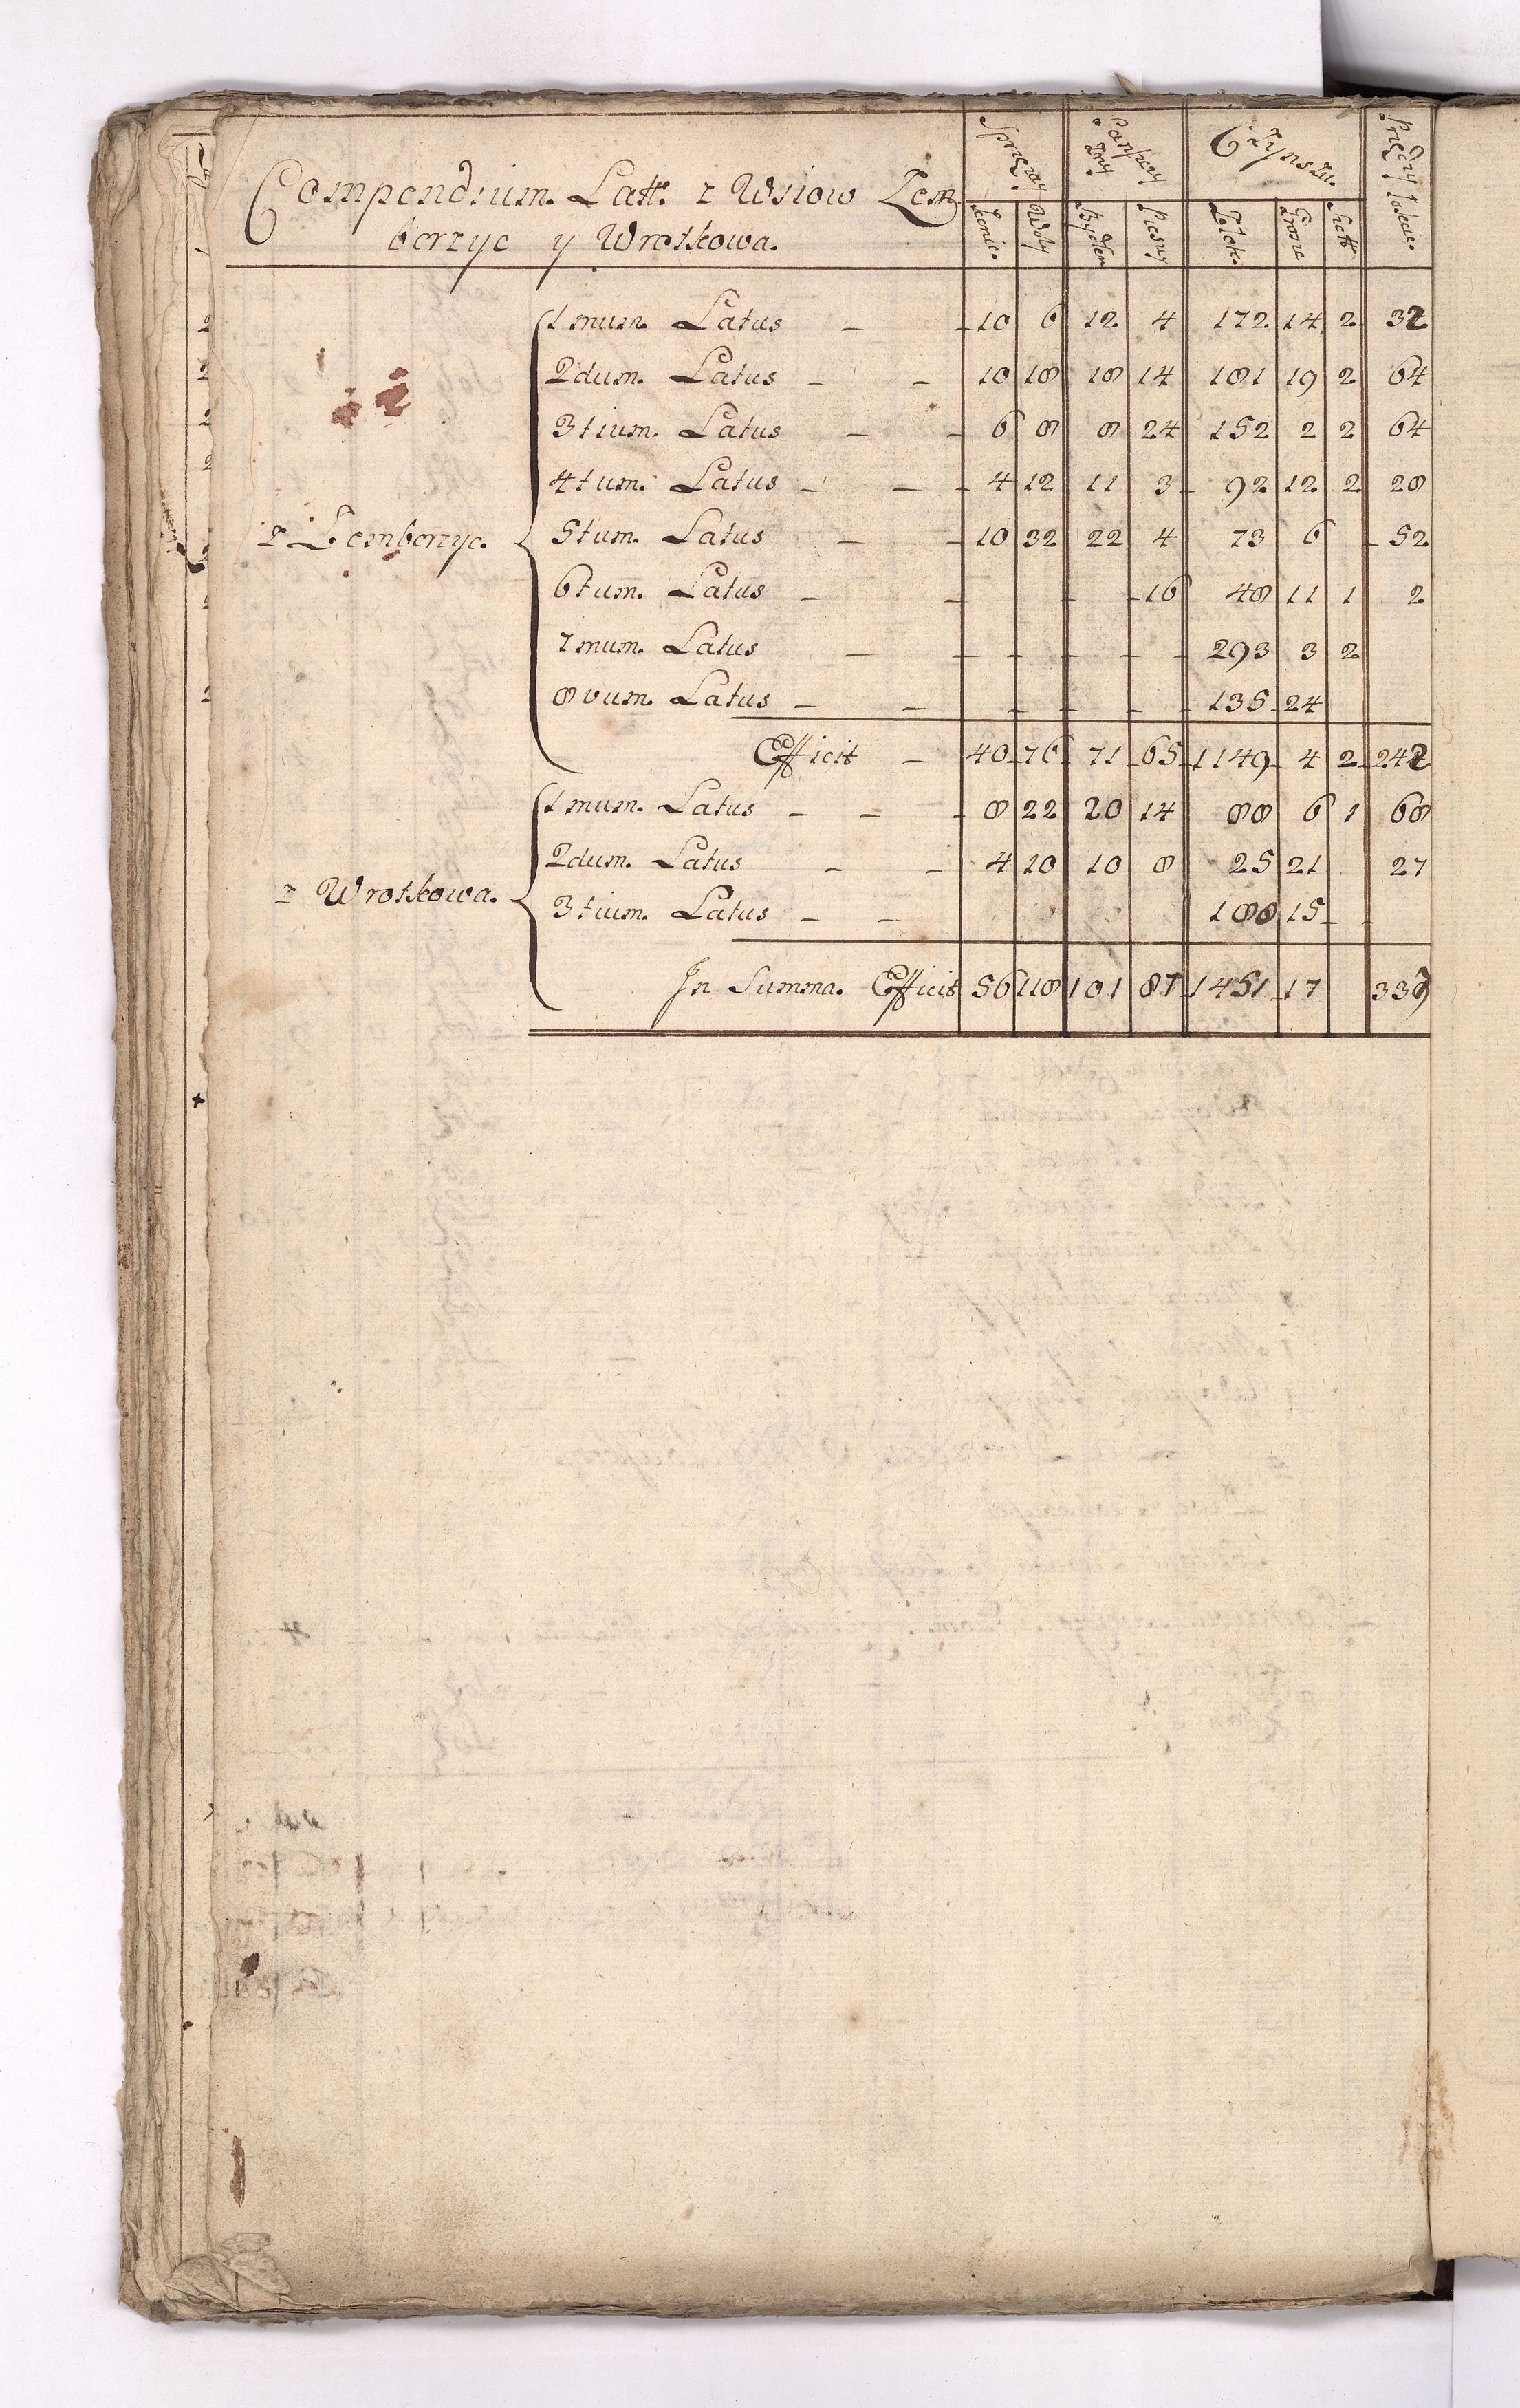 Compendium. Latt. z Wsiow Zem
borzyc y Wrotkowa.
Sprzęzay Panszczyzny Czynszu. Przędzy Łokcie.
Konie. Woły Bydłem Pieszy Złote. Grosze Szel:
1mum Latus 10 6 12 4 172 14 2 32
2dum. Latus 10 18 18 14 181 19 2 64
3tium. Latus 6 8 8 24 152 2 2 64
4tum. Latus 4 12 11 3 92 12 2 28
z Zemborzyc. 5tum. Latus 10 32 22 4 73 6 52
6tum. Latus 16 48 11 1 2
7mum. Latus 293 3 2
8vum. Latus 135 24
Efficit 40 76 71 65 1149 4 2 242
1mum. Latus 8 22 20 14 88 6 1 68
2dum. Latus 4 10 10 8 25 21 27
z Wrotkowa. 3tium. Latus 188 15
In Summa. Efficit 56 118 101 87 1451 17 337